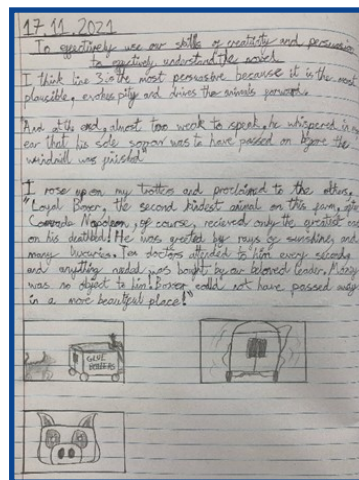 17.11.2021
To effectively use our skills of creativity and persuasion
to effectively understand the novel
I think line 3 is the most persuasive because it is the most
plausible, evokes pity and drives the animals forward.
"And at the end, almost too weak to speak, he whispered in
ear that his sole sorrow was to have passed on before the
windmill was finished"
I rose up on my trotters and proclaimed to the others,
"Loyal Boxer, the second kindest animal on this farm, after
Comrade Napoleon, of course, recieved only the greatest care
on his deathbed! He was greeted by rays of sunshine, and
many luxuries. Ten doctors attended to him every second,
and anything needed was bought by our beloved leader. Money
was no object to him. Boxer could not have passed away
in a more beautiful place!"
GLUE
BOILERS